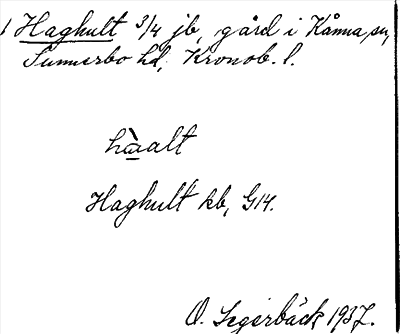 1 Haghult 3/4 jb, gård i Kånna sn,
Sunnerbo hd, Kronob. l.
hàalt
Haghult kb, G14.
O. Segerbäck 1937.